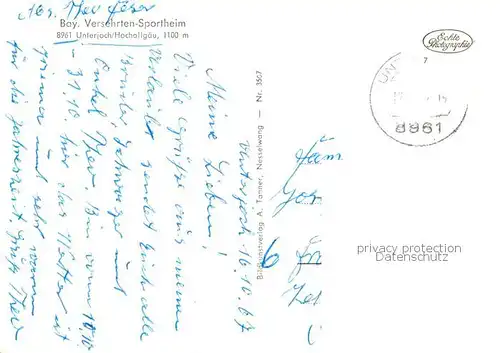 Abs. Theo
Bay. Versehrten-Sportheim
8961 Unterjoch/Hochallgäu, 1100 m
Echte
Photographie
7
8961
Unterjoch 16.10.67
Meine Lieben!
Viele Grüße aus meinem
Urlaub sendet Euch alle
Bruder, Schwager und
Onkel Theo. Bin vom 10.10.
– 31.10. hier. Das Wetter ist
prima und sehr warm
für die Jahreszeit. Gruß Theo
Bild-Kunstverlag A. Tanner, Nesselwang — Nr. 3567
Fam.
6
privacy protection
Datenschutz